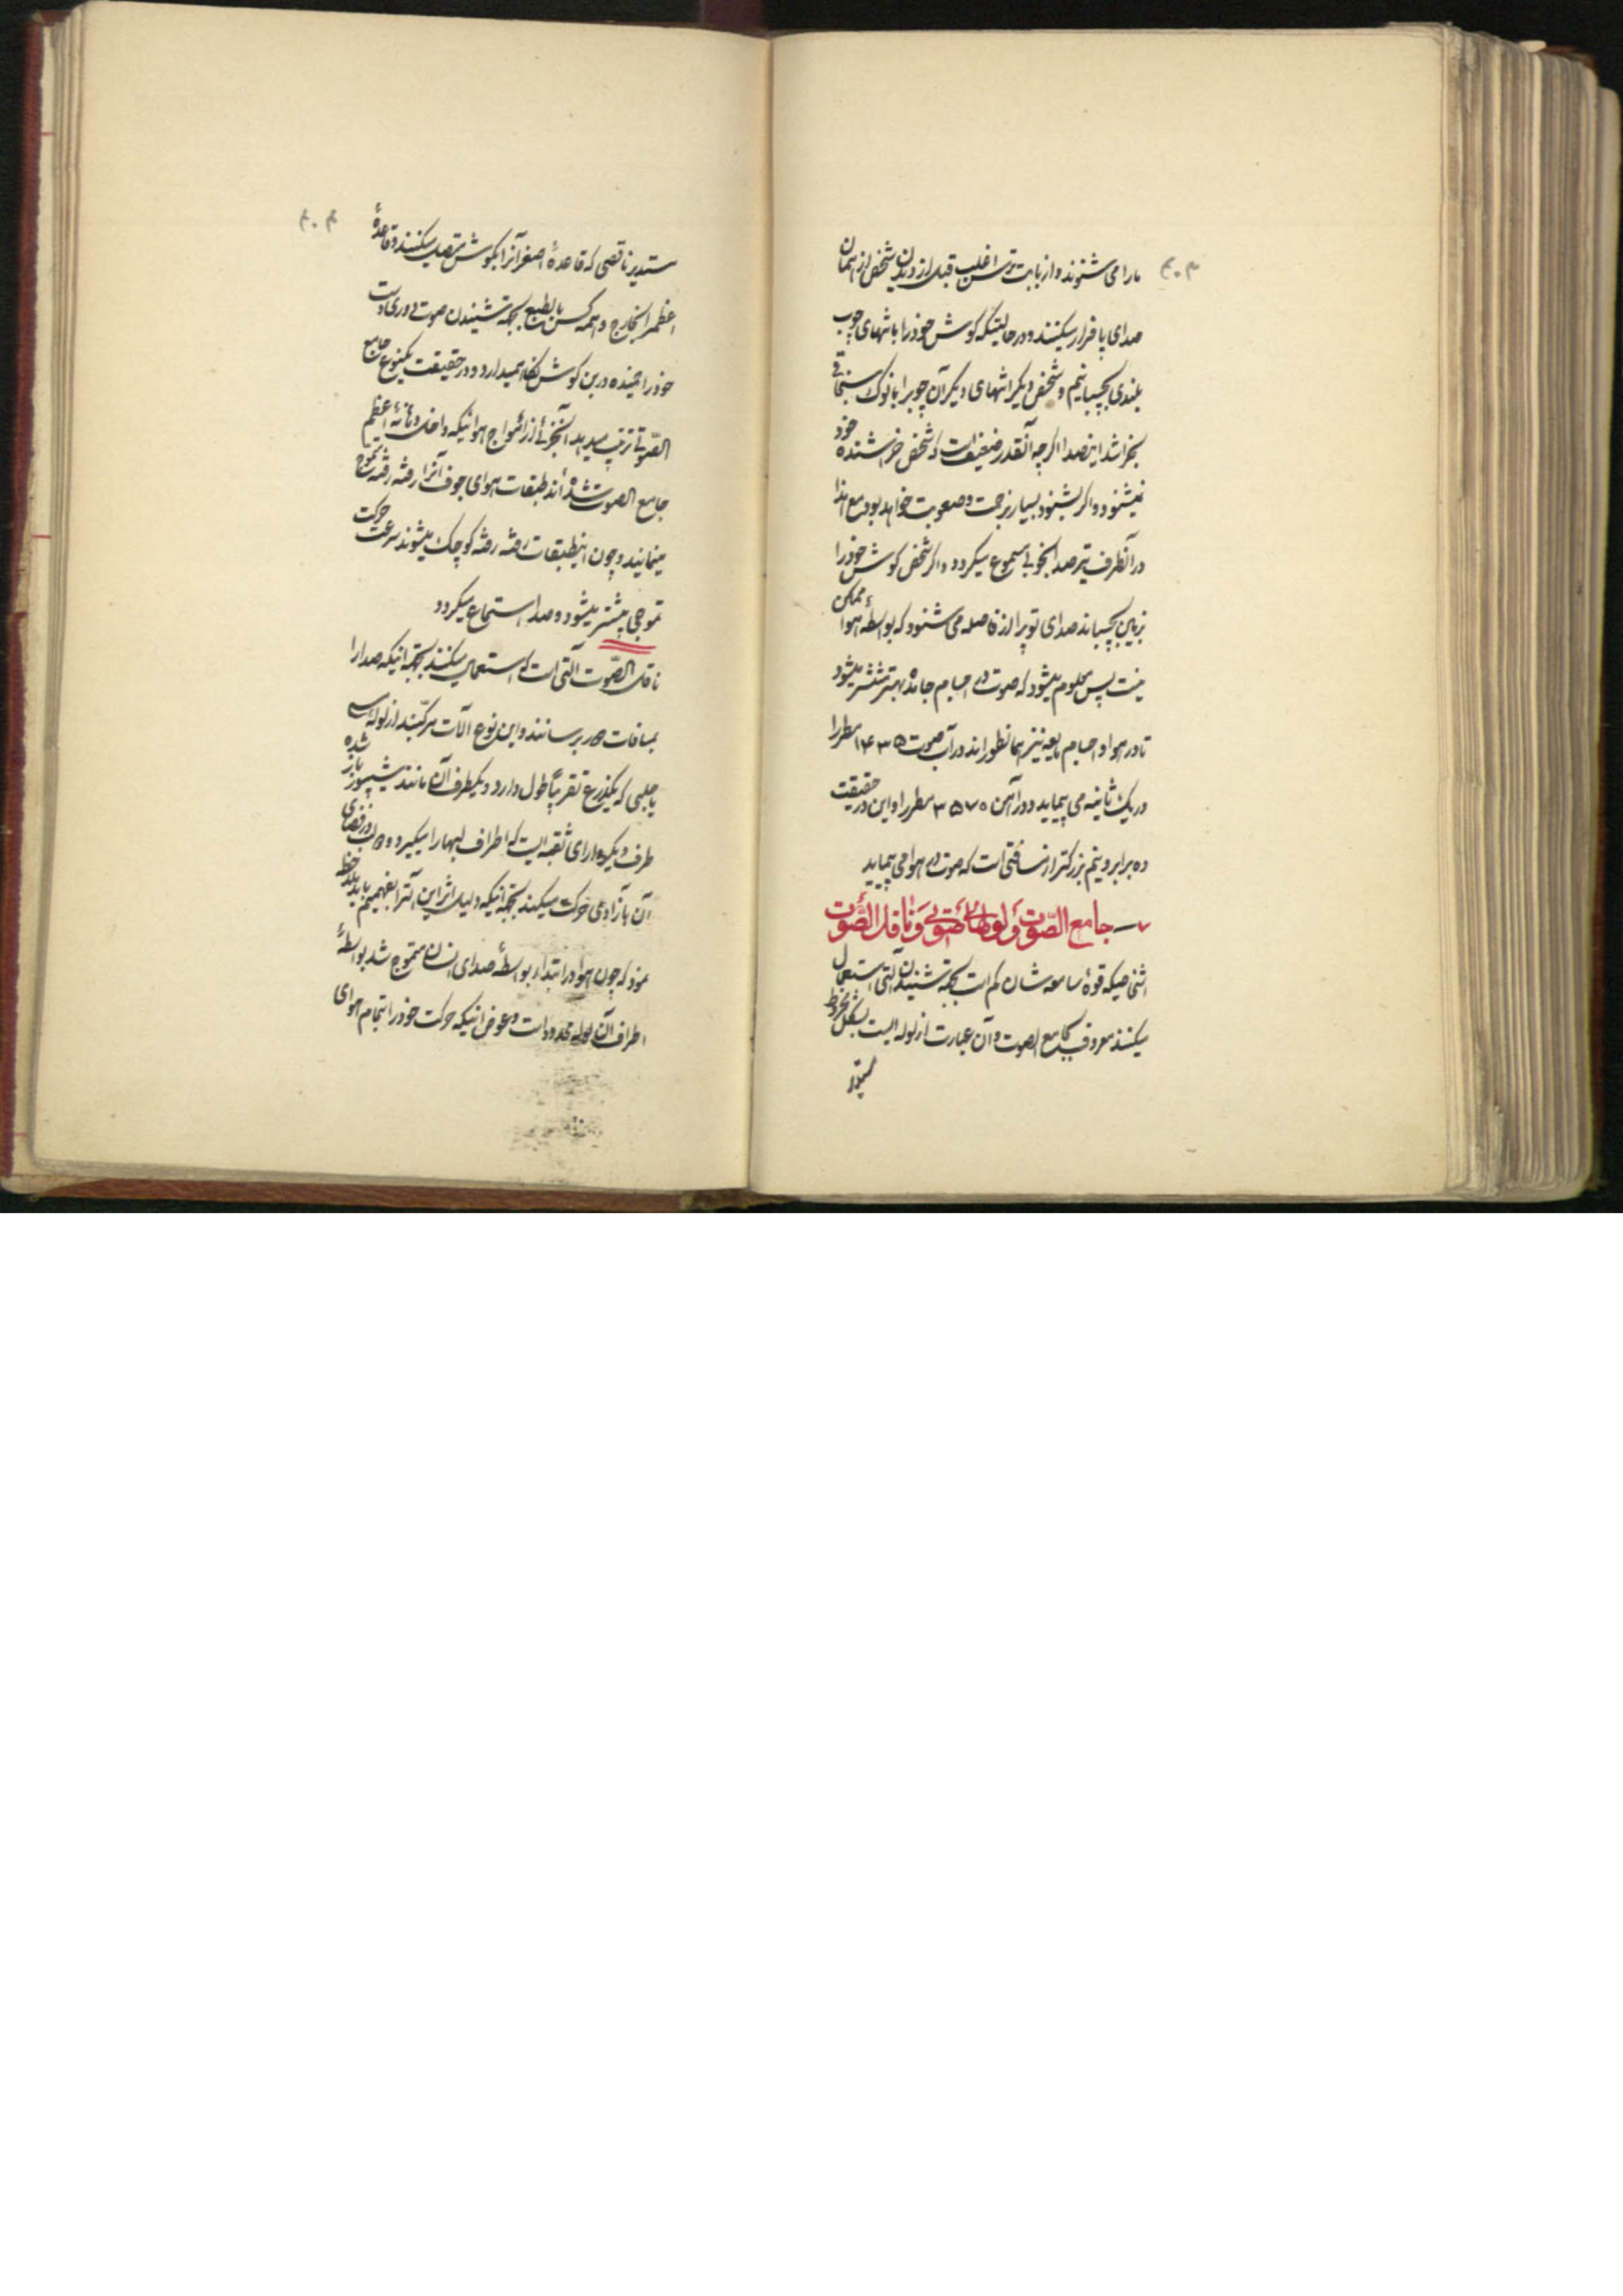 ۴۰۳
ما را می شنوند و از بابت ترس اغلب قبل از دیدن شخص از همان
صدای پا فرار میکنند و در حالیتیکه کوش خود را بانتهای چوب
بلندی بچسبانیم و شخص دیکر انتهای دیکر آن چوبرا با نوک سنجاقی
بخراشد اینصدا اکرچه آنقدر ضعیف است که شخص خراشنده خود
نمیشنود و اکر بشنود بسیار بزحمت و صعوبت خواهد بود مع هذا
در آنطرف تیر صدا بخوبی مسموع میکردد و اکر شخص کوش خود را
بزمین بچسباند صدای توپرا از فاصله می شنود که بواسطه هوا ممکن
نیست پس معلوم میشود که صوت در اجسام جامده بهتر منتشر میشود
تا در هوا و اجسام مایعه نیز همانطور اند در آب صوت ۱۴۳۵ مطر را
در یک ثانیه می پیماید و در آهن ۳۵۷۰ مطر را و این در حقیقت
ده برابر و نیم بزرکتر از مسافتی است که صوت در هوا می پیماید
۷ — جامع الصّوت و لولهای صوتی و ناقل الصّوت
اشخاصیکه قوهٔ سامعه شان کم است بجهة شنیدن آلتی استعمال
میکنند معروف بجامع الصوت و آن عبارت از لوله ایست بشکل مخروط
مستدیر
۴۰۴
مستدیر ناقصی که قاعدهٔ اصغر آنرا بکوش متصل میکنند و قاعدهٔ
اعظم را بخارج و همه کس بالطبع بجهة شنیدن صوت دوری دست
خود را خمیده در بن کوش نکاه میدارد و در حقیقت یکنوع جامع
الصّوتی ترتیب میدهد آنجزئی از امواج هوائیکه داخل دهانهٔ اعظم
جامع الصوت شده اند طبقات هوای جوف آنرا رفته رفته بتموج
مینمایند و چون اینطبقات رفته رفته کوچک میشوند سرعت حرکت
تموجی بیشتر میشود و صدا استماع میکردد
ناقل الصّوت آلتی است که استعمال میکنند بجهة اینکه صدا را
بمسافات دور برسانند و این نوع آلات مرکبند از لولهٔ مسی
یا حلبی که یکذرع تقریباً طول دارد و یکطرف آن مانند شیپور باز شده
طرف دیکر دارای ثقبه ایست که اطراف لبها را میکیرد و لب در فضای
آن بآزادی حرکت میکند بجهة اینکه دلیل اثر این آلترا بفهمیم باید ملاحظه
نمود که چون هوا در ابتداء بواسطهٔ صدای انسان متموج شد بواسطهٔ
اطراف آن لوله محدود است و عوض اینکه حرکت خود را بتمام هوای